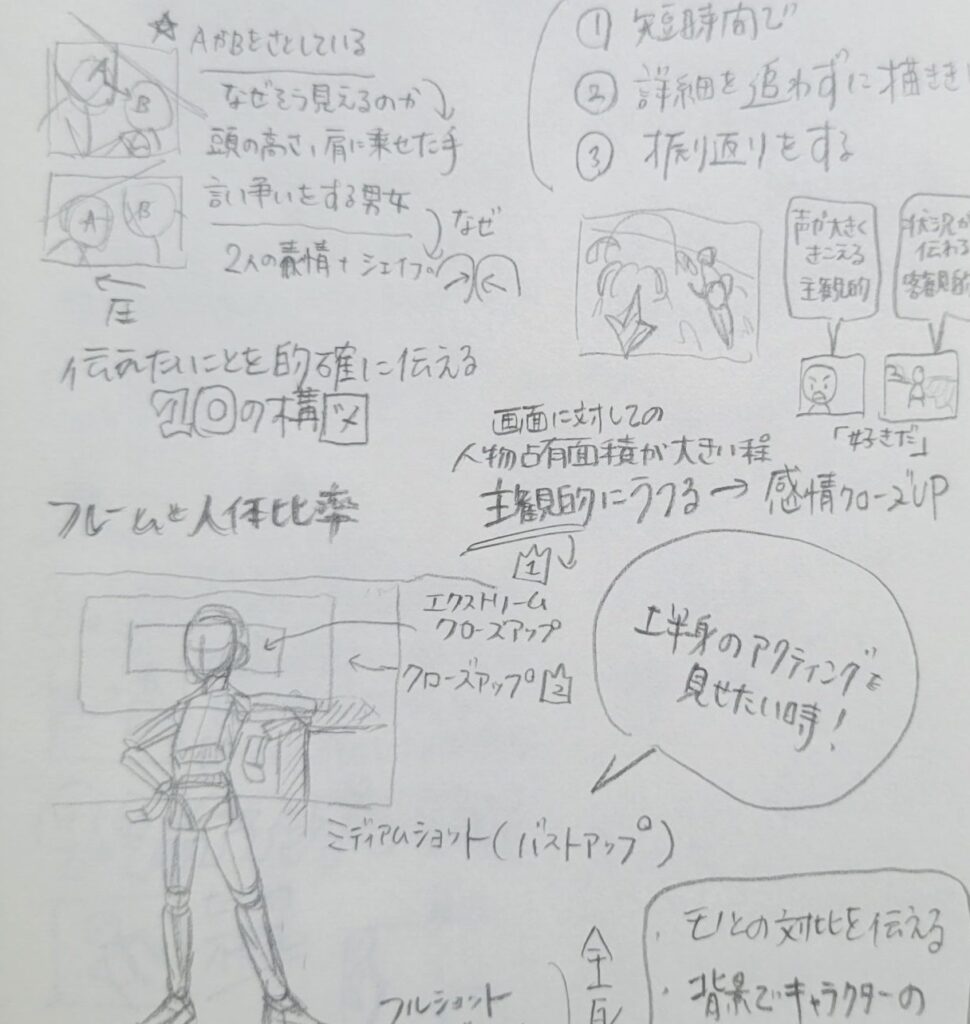 ☆ AがBをさとしている
A
B
なぜそう見えるのか
頭の高さ、肩に乗せた手
言い争いをする男女
なぜ
A
B
2人の表情+シェイプ
圧
① 短時間で
② 詳細を追わずに描き
③ 振り返りをする
声が大きく
きこえる
主観的
状況が
伝わる
客観的
「好きだ」
伝えたいことを的確に伝える
10の構図
画面に対しての
人物占有面積が大きい程
主観的にうつる→感情クローズUP
フレームと人体比率
1
エクストリーム
クローズアップ
クローズアップ 2
上半身のアクティングを
見せたい時!
ミディアムショット(バストアップ)
フルショット
全
・モノとの対比を伝える
・背景でキャラクターの